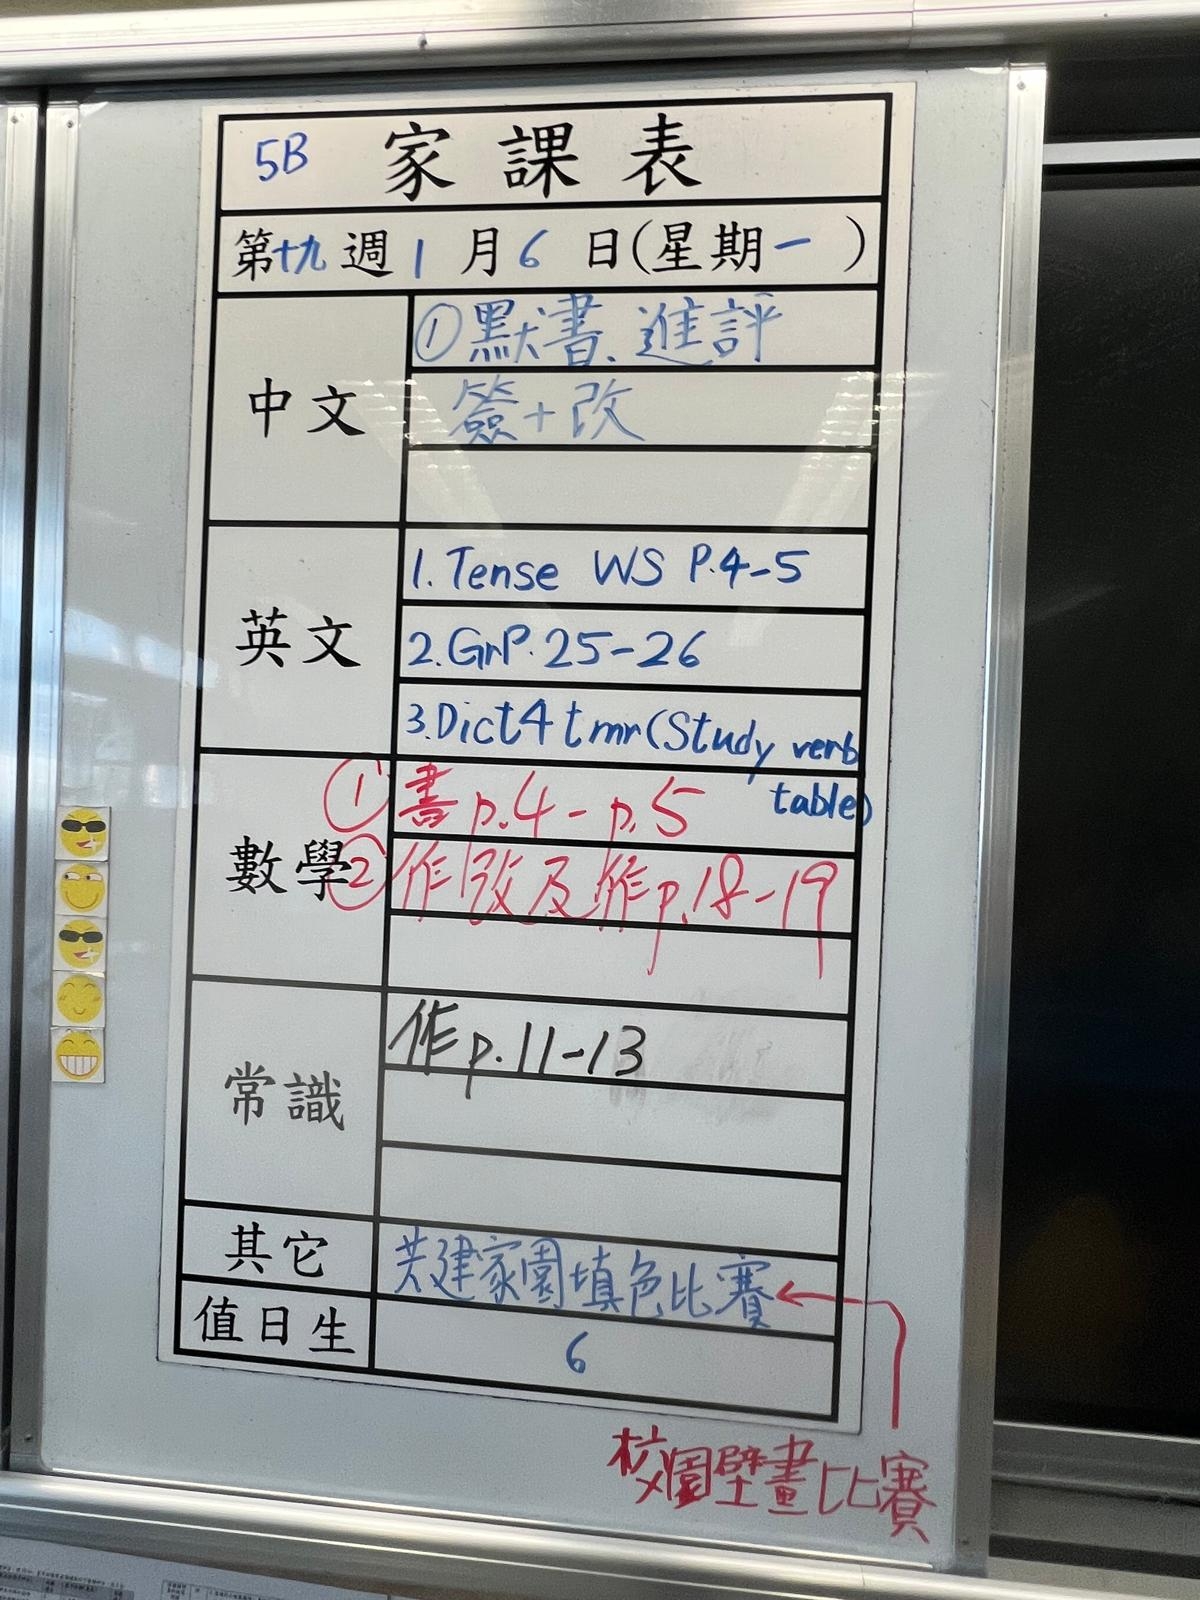 5B 家課表
第十九週 1月6日(星期一)
中文
①默書、進評
簽+改
英文
1. Tense WS P.4-5
2. Gr P. 25-26
3. Dict 4 tmr (Study verb
table)
數學
① 書 p.4 - p.5
② 作改及作p.18-19
常識
作 p.11-13
其它
共建家園填色比賽
值日生
6
校園壁畫比賽